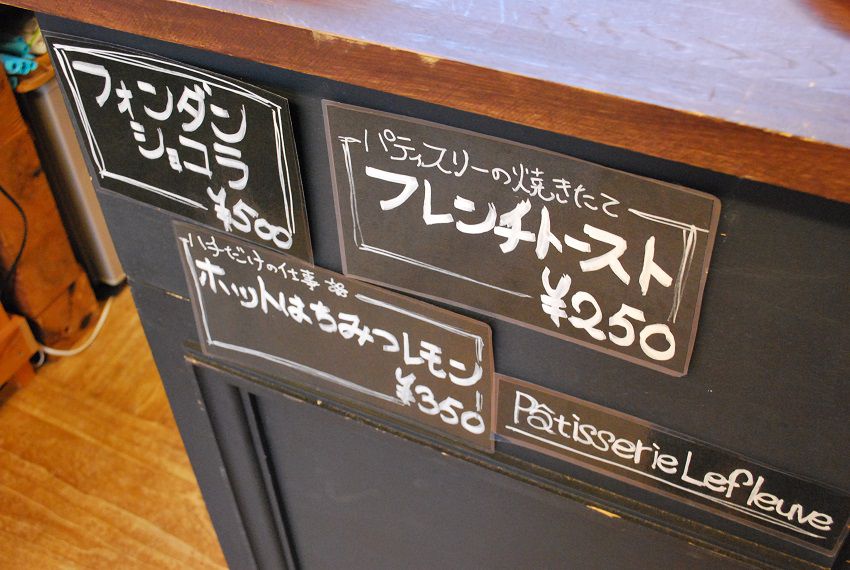 フォンダン
ショコラ
¥500
パティスリーの焼きたて
フレンチトースト
¥250
ハチだけの仕事
ホットはちみつレモン
¥350
Pâtisserie Lefleuve